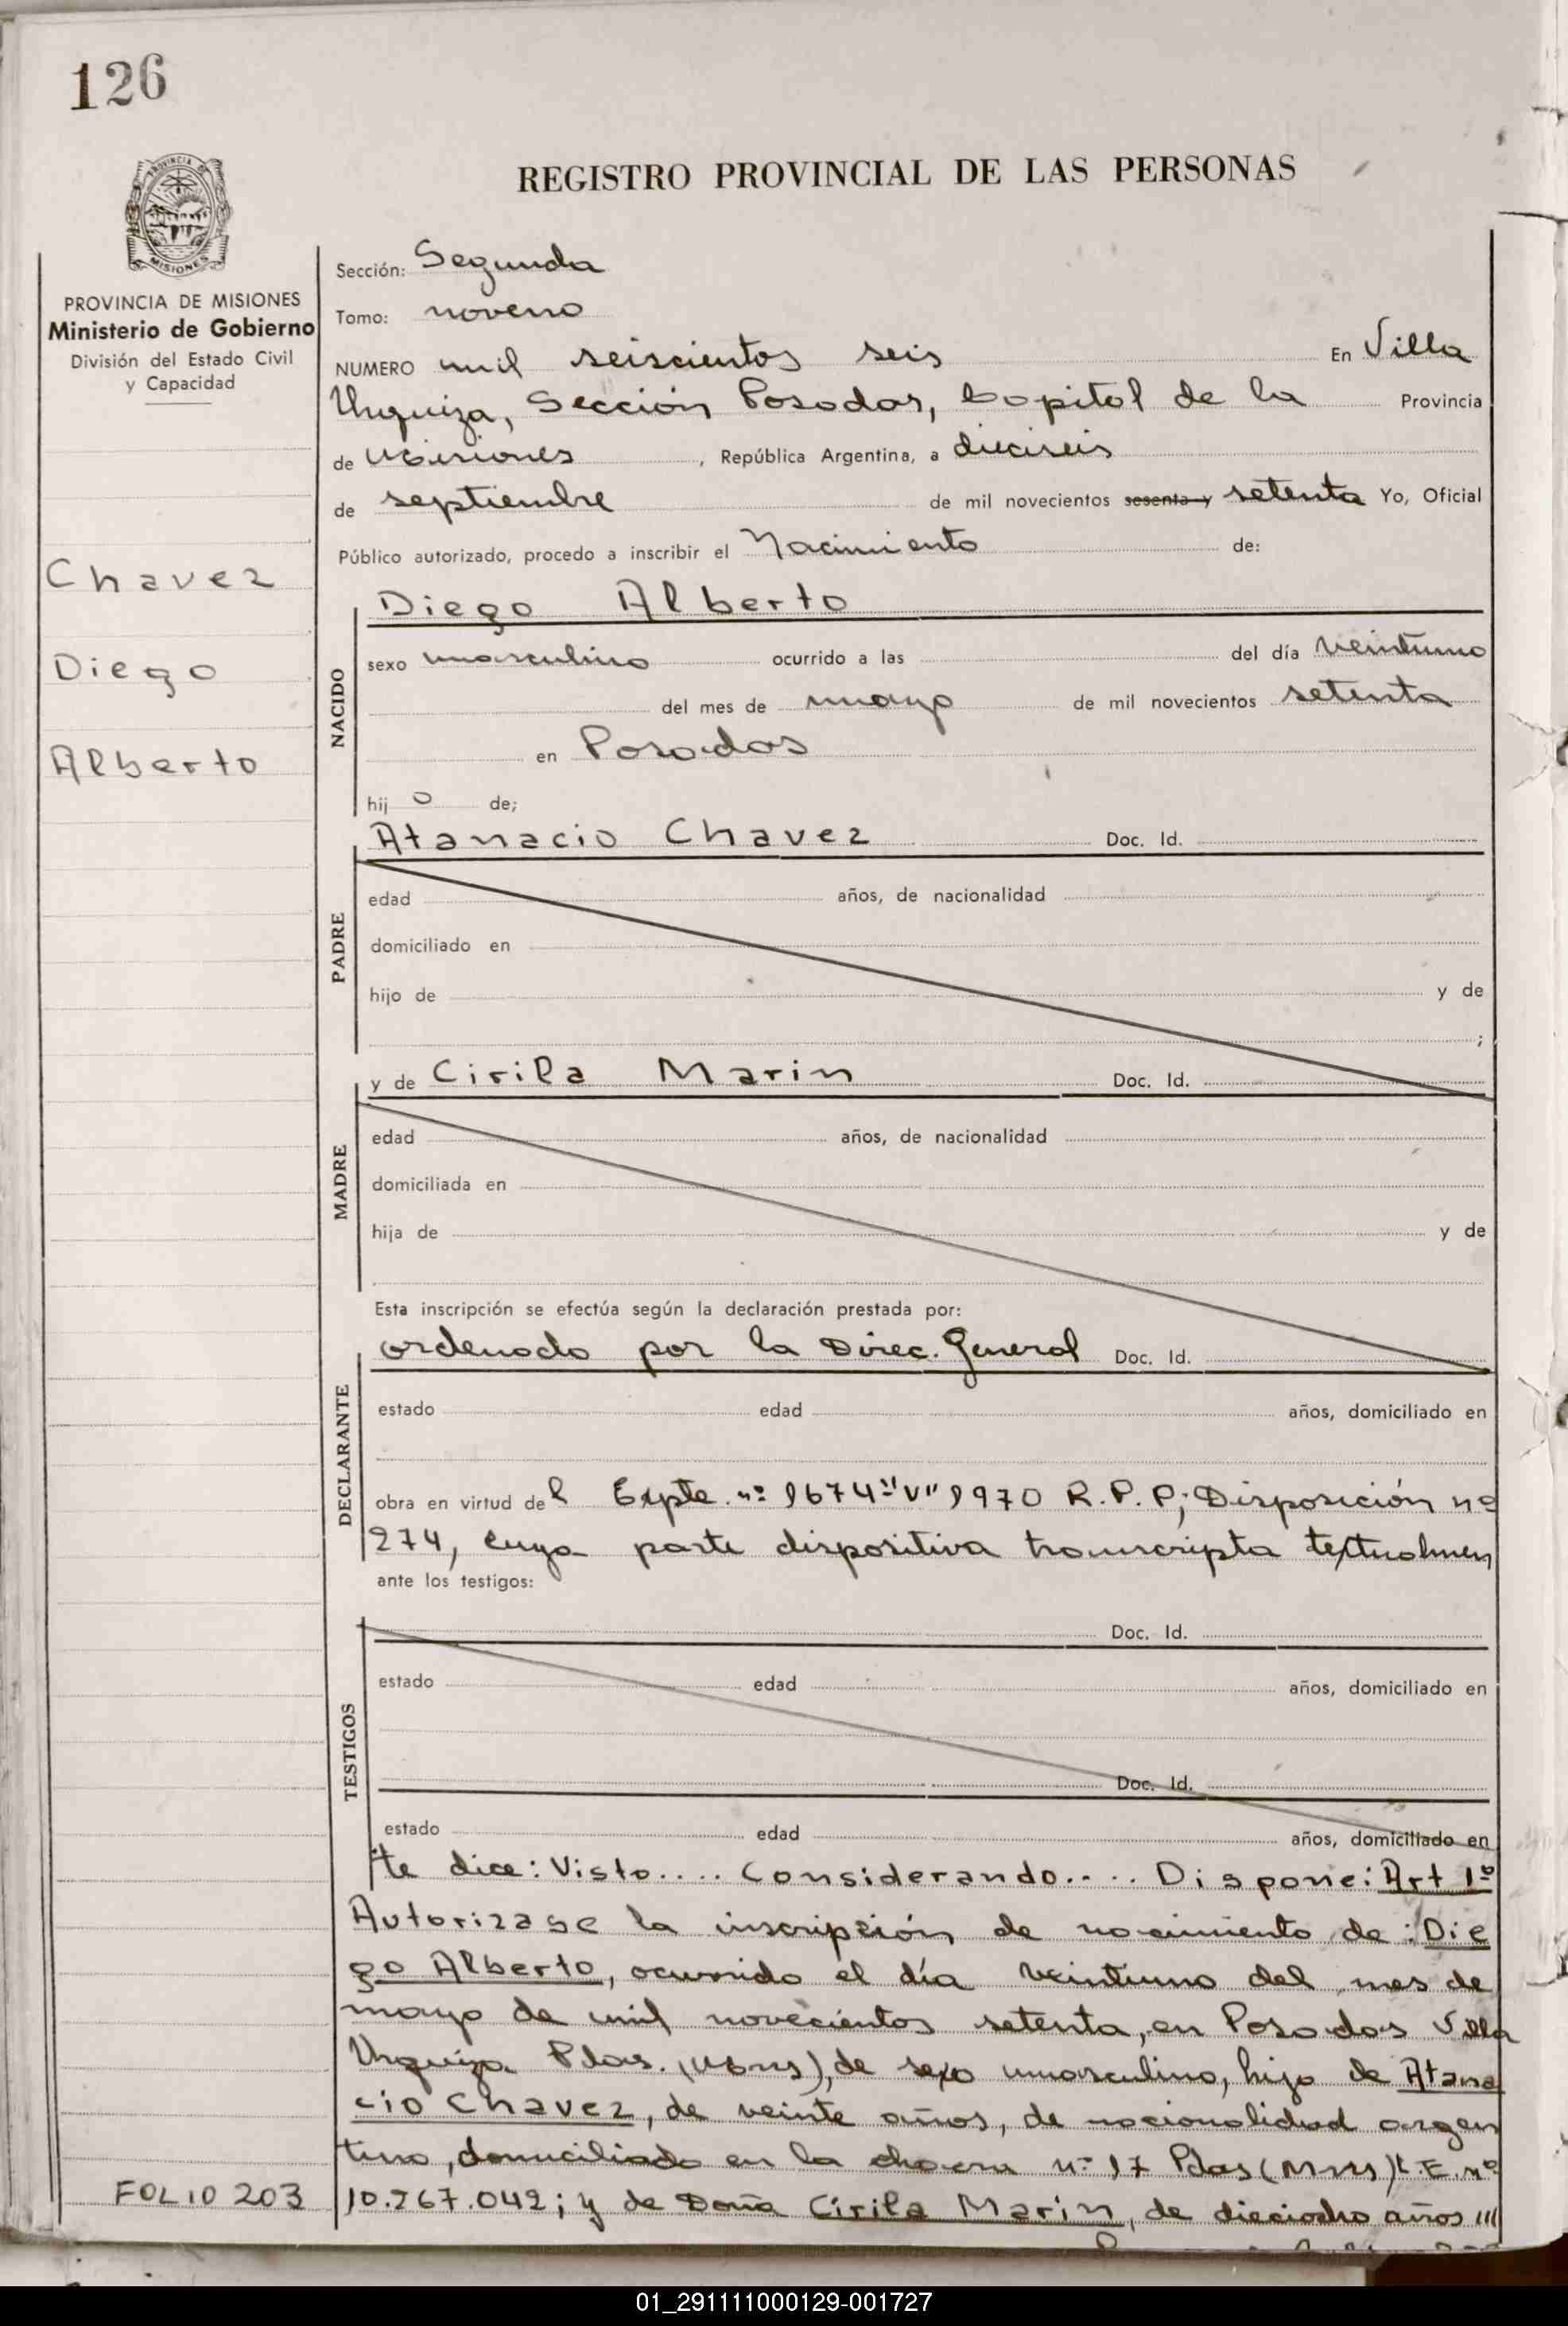 126
PROVINCIA DE
MISIONES
REGISTRO PROVINCIAL DE LAS PERSONAS
PROVINCIA DE MISIONES
Ministerio de Gobierno
División del Estado Civil
y Capacidad
Chavez
Diego
Alberto
FOLIO 203
Sección: Segunda
Tomo: noveno
NUMERO mil seiscientos seis En Villa
Urquiza, Sección Posadas, Capital de la Provincia
de Misiones, República Argentina, a dieciseis
de septiembre de mil novecientos sesenta y setenta Yo, Oficial
Público autorizado, procedo a inscribir el Nacimiento de:
NACIDO
Diego Alberto
sexo masculino ocurrido a las del día veintiuno
del mes de mayo de mil novecientos setenta
en Posadas
hij o de;
PADRE
Atanacio Chavez Doc. Id.
edad años, de nacionalidad
domiciliado en
hijo de y de
;
MADRE
y de Cirila Marin Doc. Id.
edad años, de nacionalidad
domiciliada en
hija de y de
Esta inscripción se efectúa según la declaración prestada por:
DECLARANTE
ordenado por la Direc. General Doc. Id.
estado edad años, domiciliado en
obra en virtud del Expte. nº 1674"V"1970 R.P.P; Disposición nº
274, cuya parte dispositiva transcripta textualmen
ante los testigos:
TESTIGOS
Doc. Id.
estado edad años, domiciliado en
Doc. Id.
estado edad años, domiciliado en
te dice: Visto.... Considerando.... Dispone: Art 1º
Autorizase la inscripción de nacimiento de: Die
go Alberto, ocurrido el día veintiuno del mes de
mayo de mil novecientos setenta, en Posadas Villa
Urquiza Pdas. (Mnes), de sexo masculino, hijo de Atana
cio Chavez, de veinte años, de nacionalidad argen
tina, domiciliado en la chacra nº 17 Pdas (Mnes) L.E. nº
10.267.042; y de Doña Cirila Marin, de dieciocho años
01_291111000129-001727